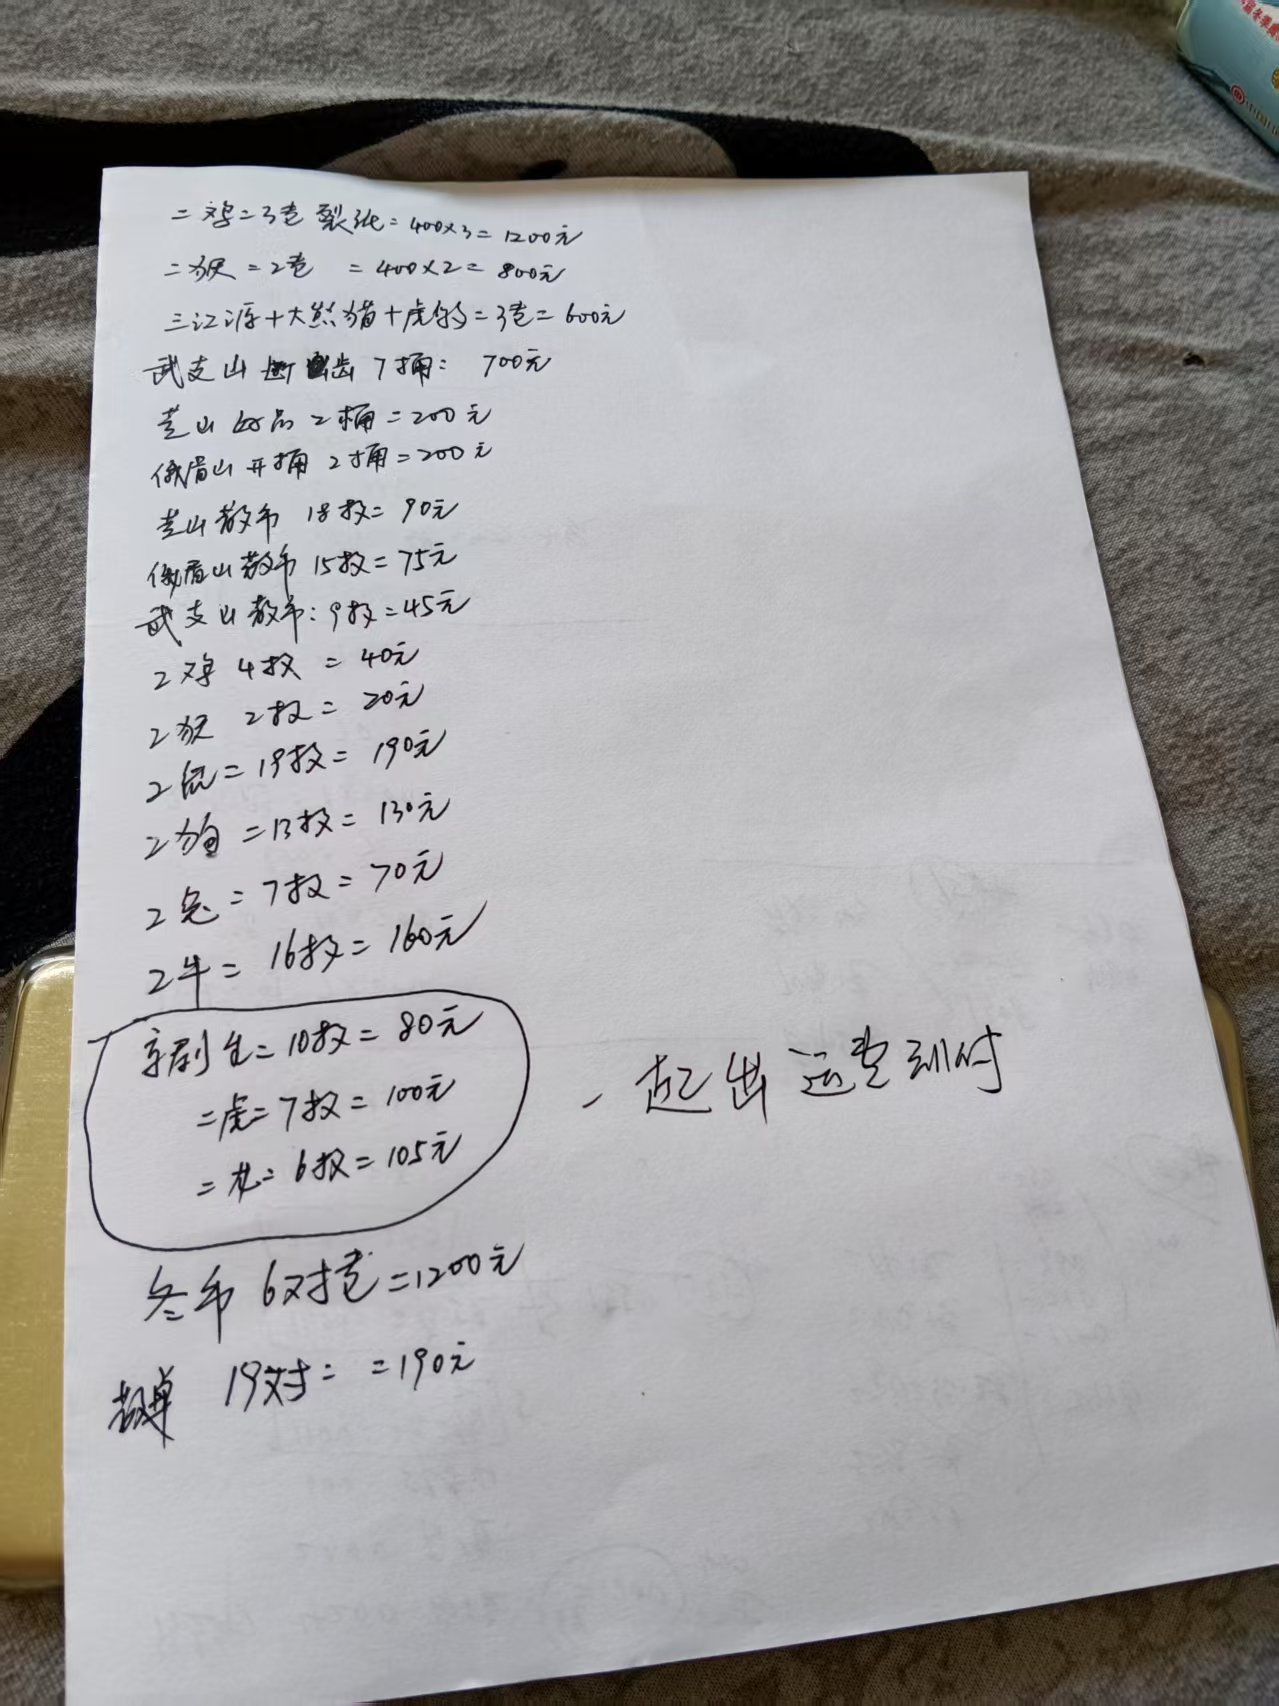 二鸡=3卷 裂纸=400×3=1200元
二猴=2卷 =400×2=800元
三江源+大熊猫+虎钞=3卷=600元
武夷山断齿7桶: 700元
老山 好品 2桶=200元
俄眉山开桶 2桶=200元
老山散币 18枚=90元
俄眉山散币 15枚=75元
武夷山散币:9枚=45元
2鸡 4枚 = 40元
2猴 2枚= 20元
2鼠=19枚= 190元
2狗=13枚= 130元
2兔=7枚=70元
2牛= 16枚= 160元
京剧生=10枚=80元
=虎=7枚=100元
=龙=6枚=105元
一起出运费到付
冬币 6对卷=1200元
散单 19对= =190元